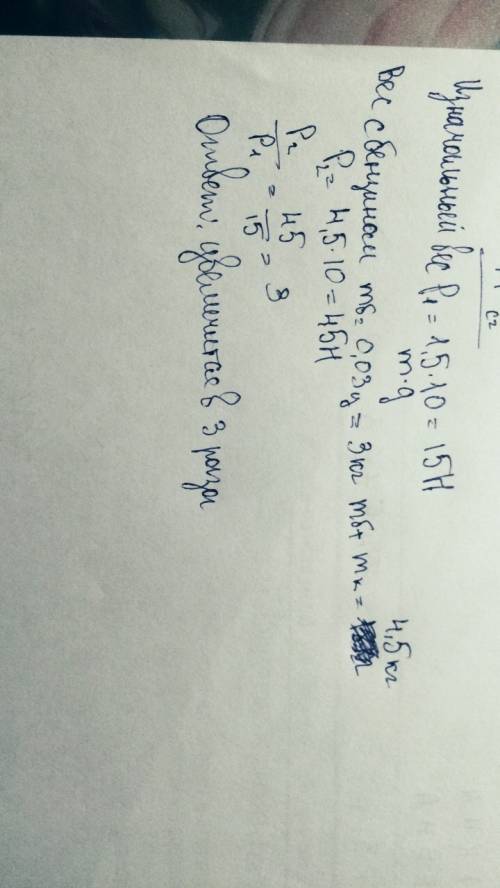 с²
Изначальный вес P₁ = 1,5·10 = 15Н
m·g
Вес с бензином mб = 0,03ц = 3кг mб + mк = 4,5кг
P₂ = 4,5·10 = 45Н
P₂/P₁ = 45/15 = 3
Ответ: увеличится в 3 раза